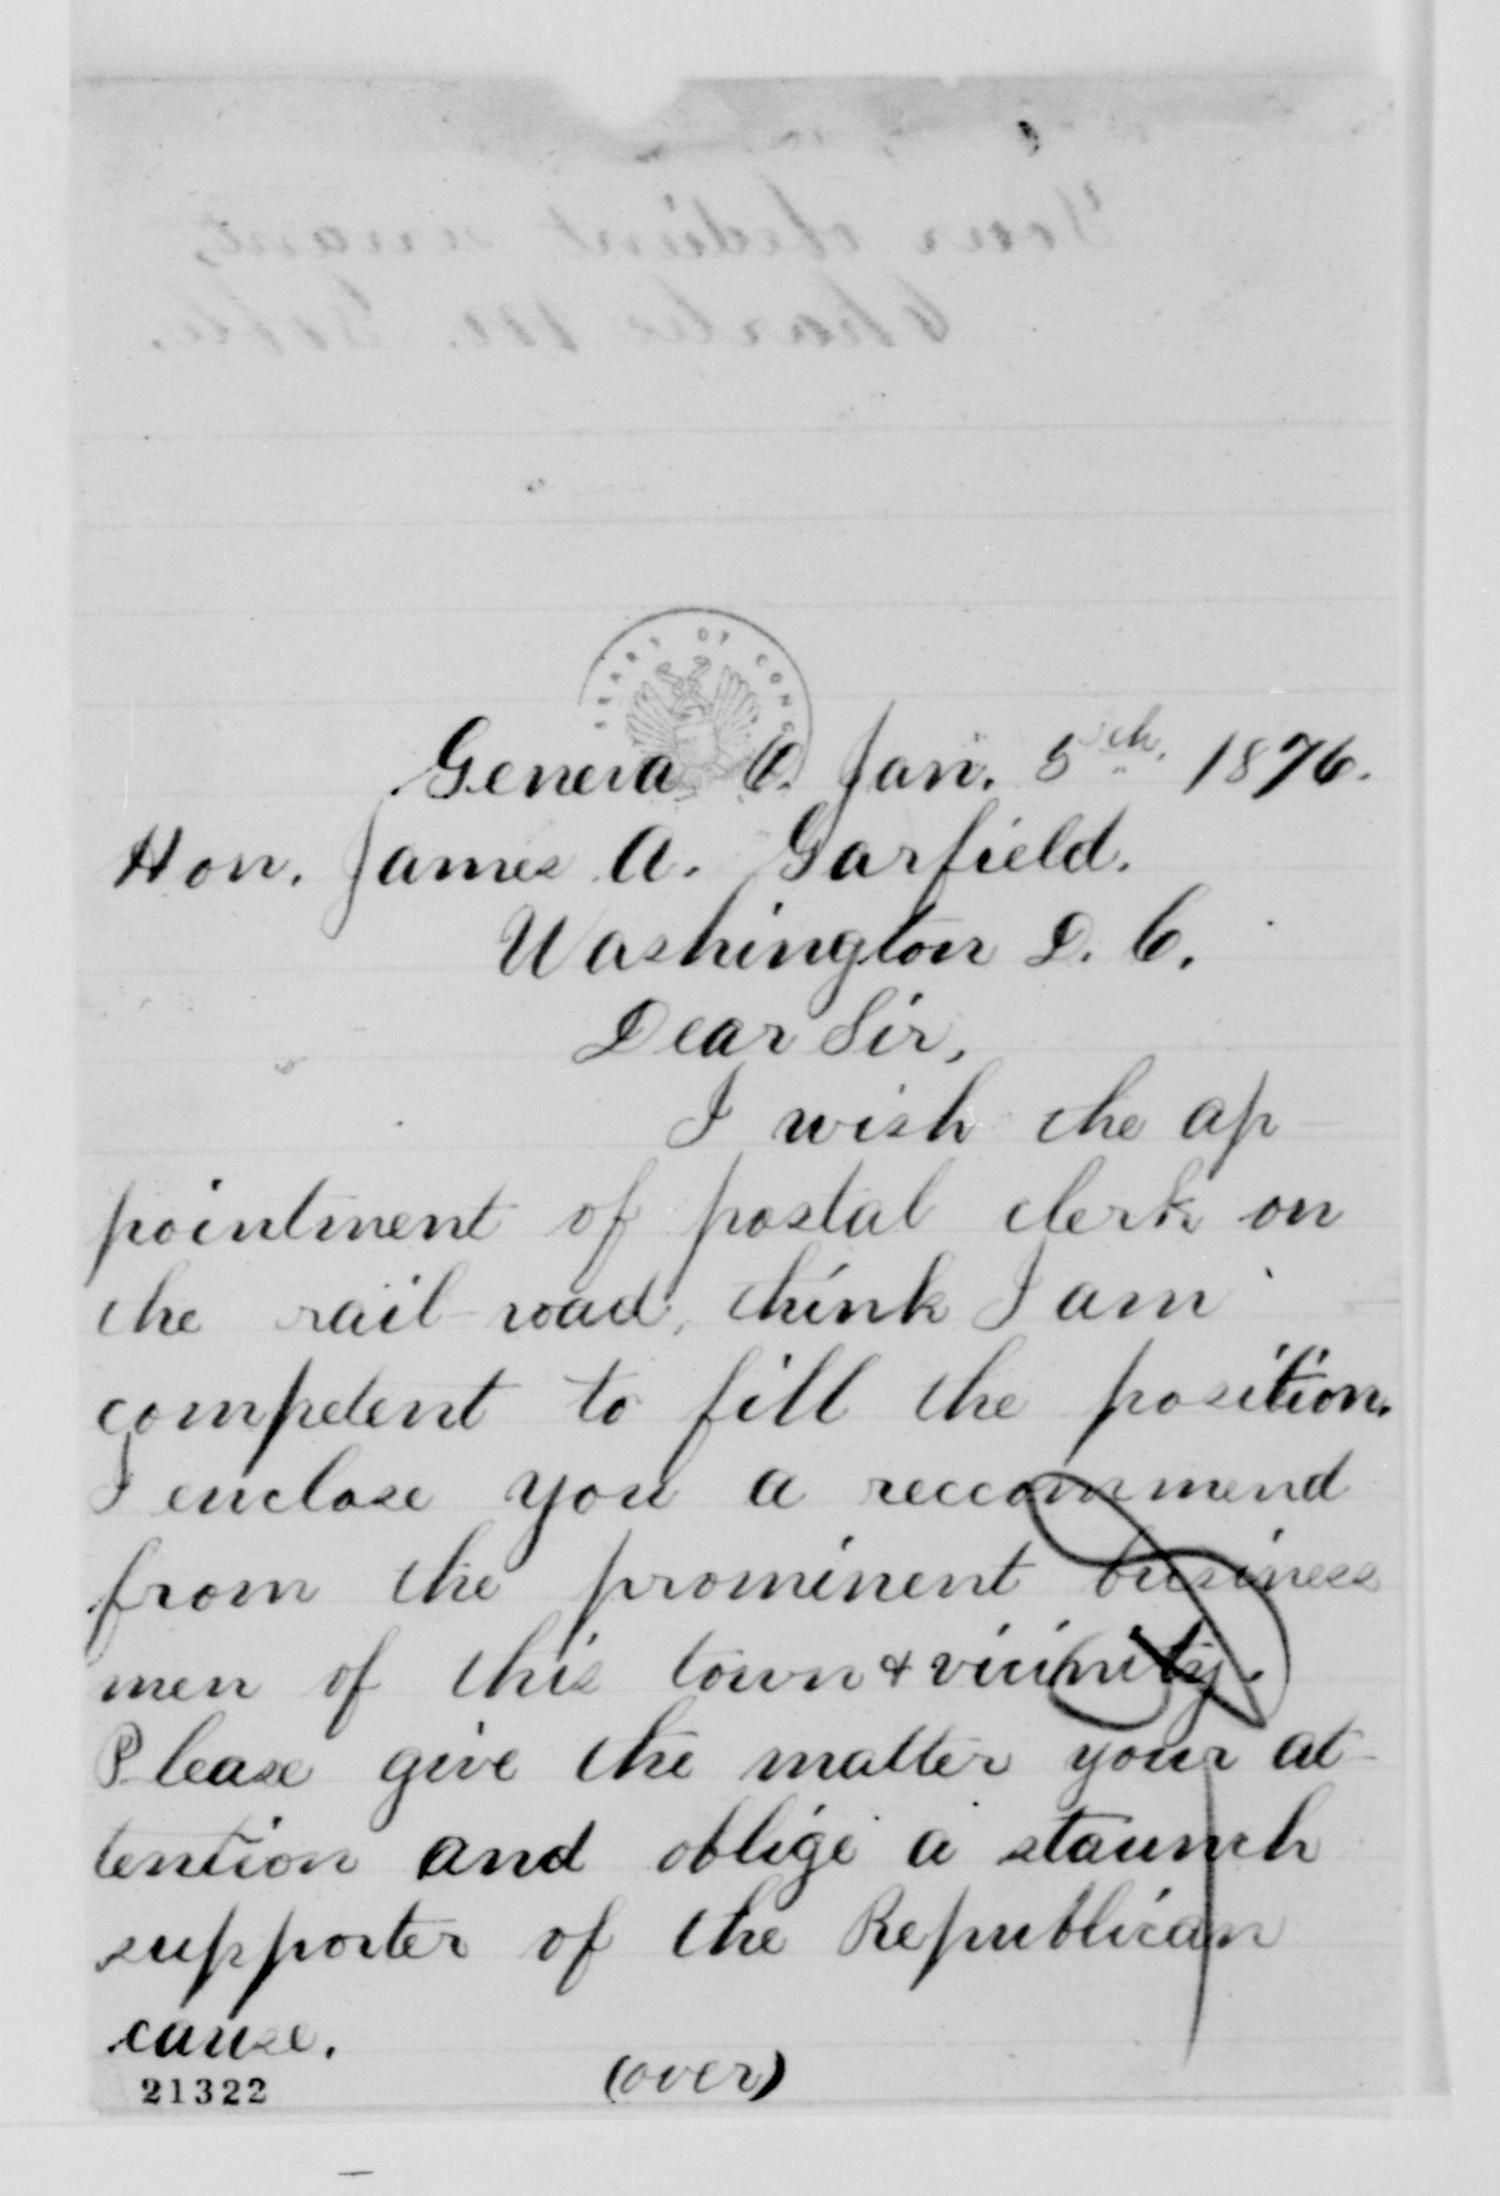 Your obedient servant,
Charles M.
LIBRARY OF CONG
Geneva O. Jan. 5th. 1876.
Hon. James A. Garfield.
Washington D. C.
Dear Sir,
I wish the ap-
pointment of postal clerk on
the rail-road, think I am
competent to fill the position.
I enclose you a reccommend
from the prominent business
men of this town & vicinity.
Please give the matter your at-
tention and oblige a staunch
supporter of the Republican
cause.
(over)
21322